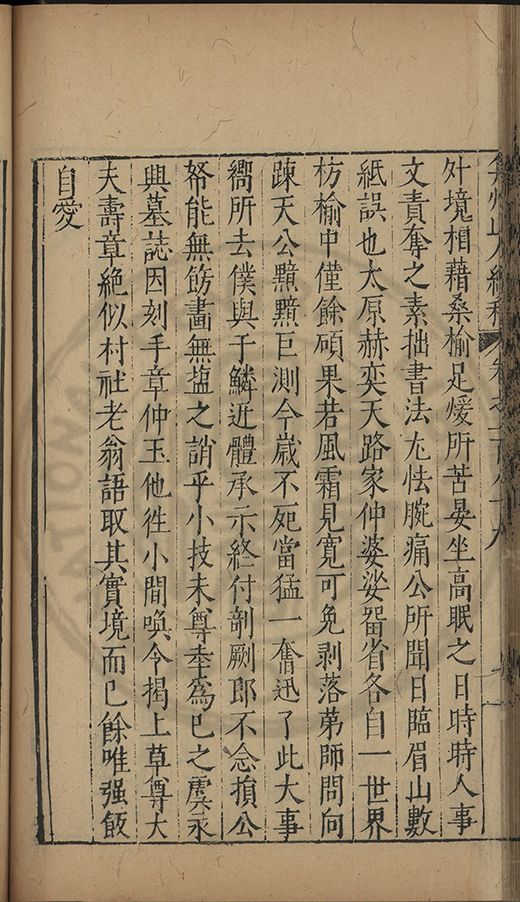 弇州山人續稿 卷之一百八十八
外境相藉桑榆足煖所苦晏坐高眠之日時時人事
文責奪之素拙書法尢怯腕痛公所聞日臨眉山數
紙誤也太原赫奕天路家仲婆娑畱省各自一世界
枋榆中僅餘碩果若風霜見寬可免剥落苐師問向
踈天公黯黮叵測今歲不死當猛一奮迅了此大事
嚮所去僕與于鱗近體承示終付剞劂郎不念損公
帑能無飭畫無盬之誚乎小技未尊幸爲已之虞永
興墓誌因刻手章仲玉他徃小間喚令搨上草尊大
夫壽章絶似村社老翁語取其實境而已餘唯强飯
自愛